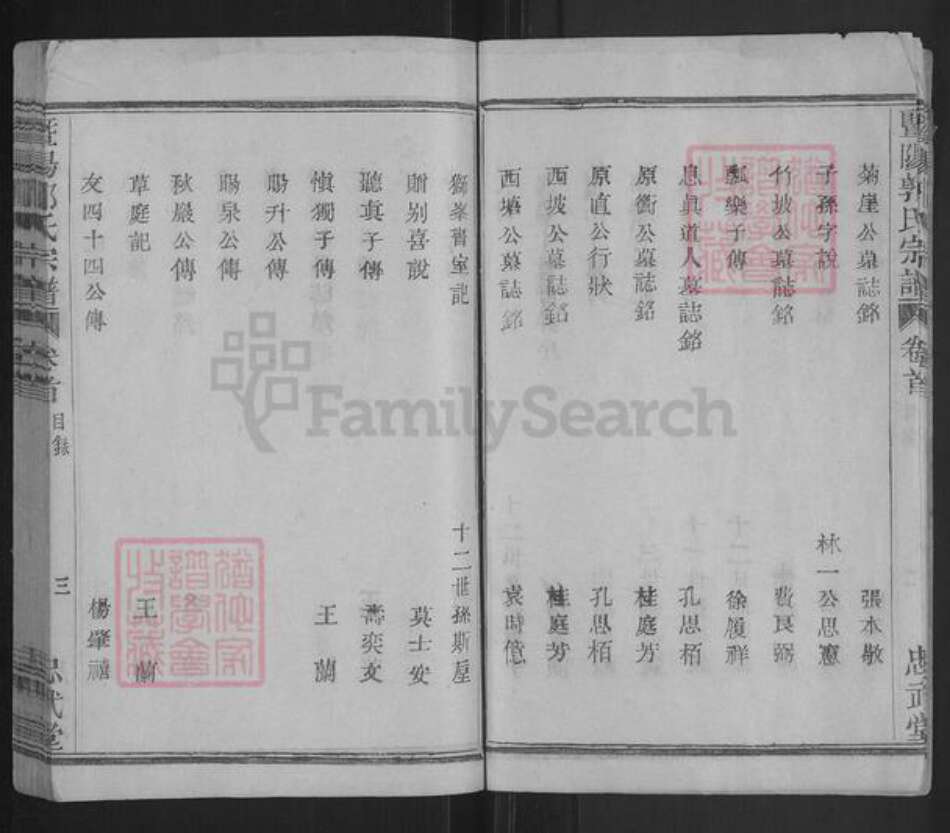 暨陽郭氏宗譜 卷首
忠武堂
菊崖公墓誌銘 張本敬
子孫字說 林一公思憲
竹坡公墓誌銘 費良弼
瓢樂子傳 徐履祥
息眞道人墓誌銘 孔思栢
原衝公墓誌銘 桂庭芳
原直公行狀 孔思栢
西坡公墓誌銘 桂庭芳
西塘公墓誌銘 袁時億
齋室記 十二世孫斯屋
贈别喜說 莫士安
聽眞子傳 壽奕文
愼獨子傳 王蘭
賜升公傳
賜泉公傳
秋巖公傳
草庭記 王蘭
友四十四公傳 楊肇禧
暨陽郭氏宗譜 卷首 目錄 三 忠武堂
FamilySearch